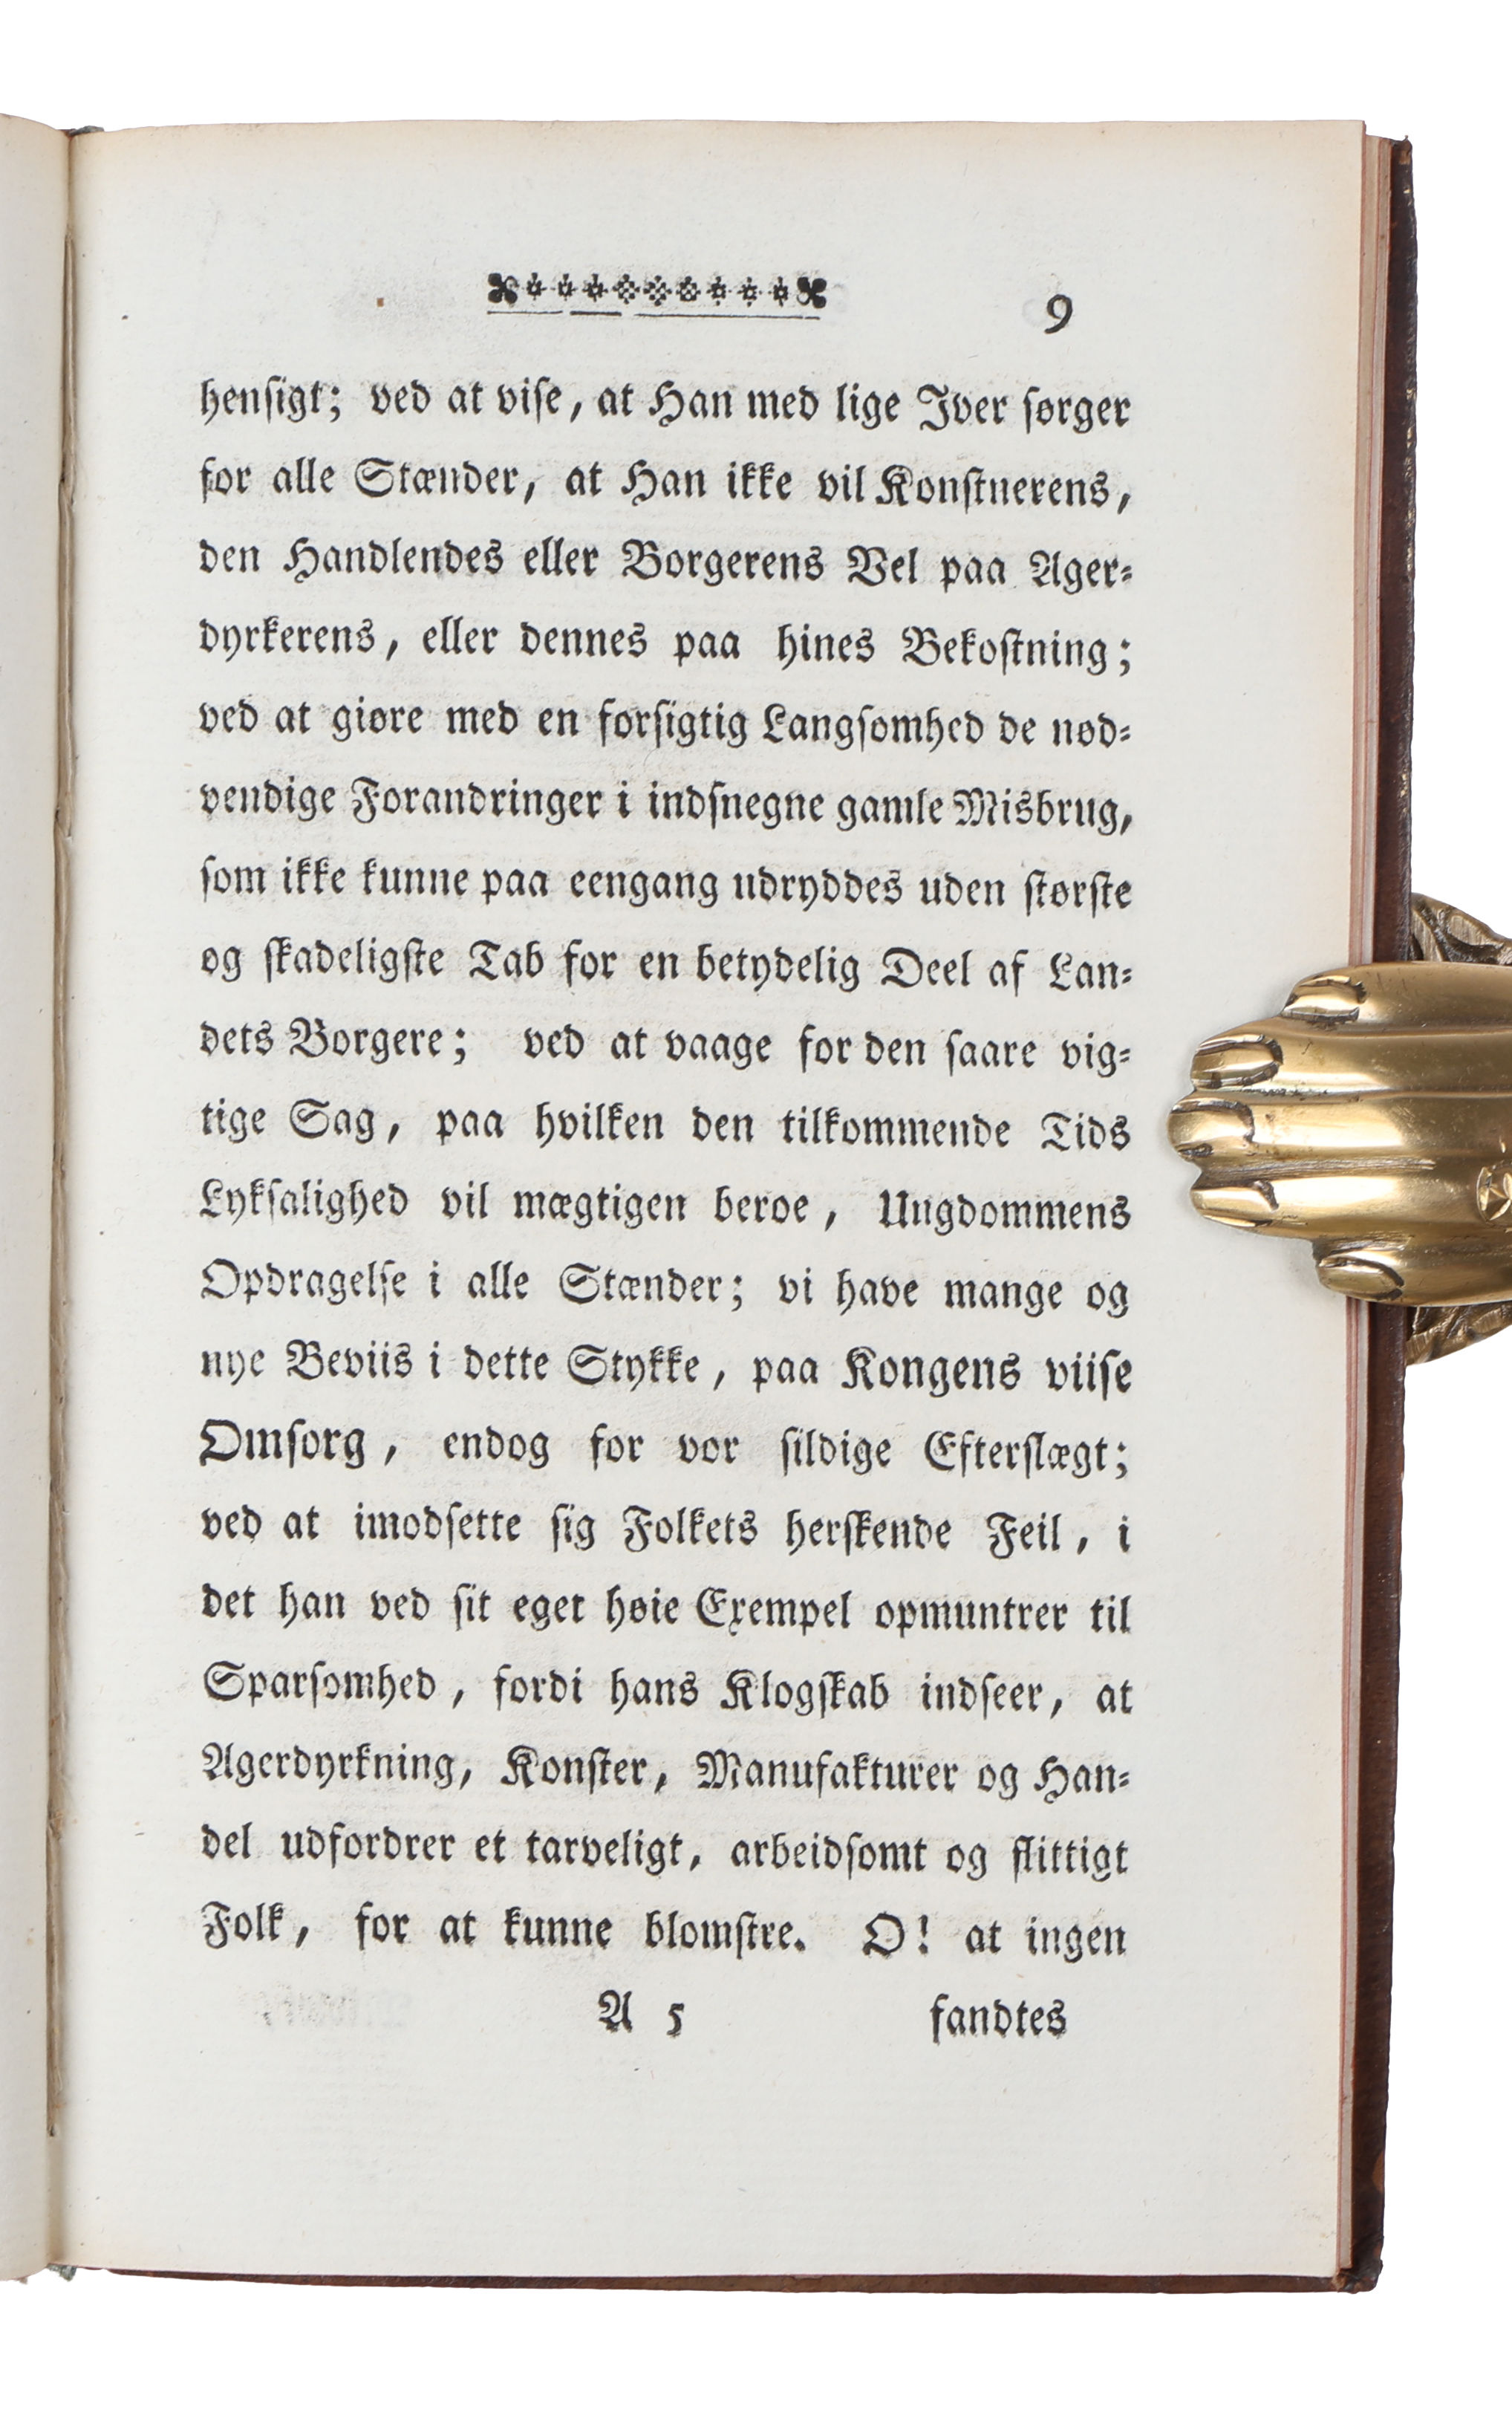 9
hensigt; ved at vise, at Han med lige Iver sørger
for alle Stænder, at Han ikke vil Konstnerens,
den Handlendes eller Borgerens Vel paa Ager-
dyrkerens, eller dennes paa hines Bekostning;
ved at giøre med en forsigtig Langsomhed de nød-
vendige Forandringer i indsnegne gamle Misbrug,
som ikke kunne paa eengang udryddes uden største
og skadeligste Tab for en betydelig Deel af Lan-
dets Borgere; ved at vaage for den saare vig-
tige Sag, paa hvilken den tilkommende Tids
Lyksalighed vil mægtigen beroe, Ungdommens
Opdragelse i alle Stænder; vi have mange og
nye Beviis i dette Stykke, paa Kongens viise
Omsorg, endog for vor sildige Efterslægt;
ved at imodsette sig Folkets herskende Feil, i
det han ved sit eget høie Exempel opmuntrer til
Sparsomhed, fordi hans Klogskab indseer, at
Agerdyrkning, Konster, Manufakturer og Han-
del udfordrer et tarveligt, arbeidsomt og flittigt
Folk, for at kunne blomstre. O! at ingen
A 5 fandtes